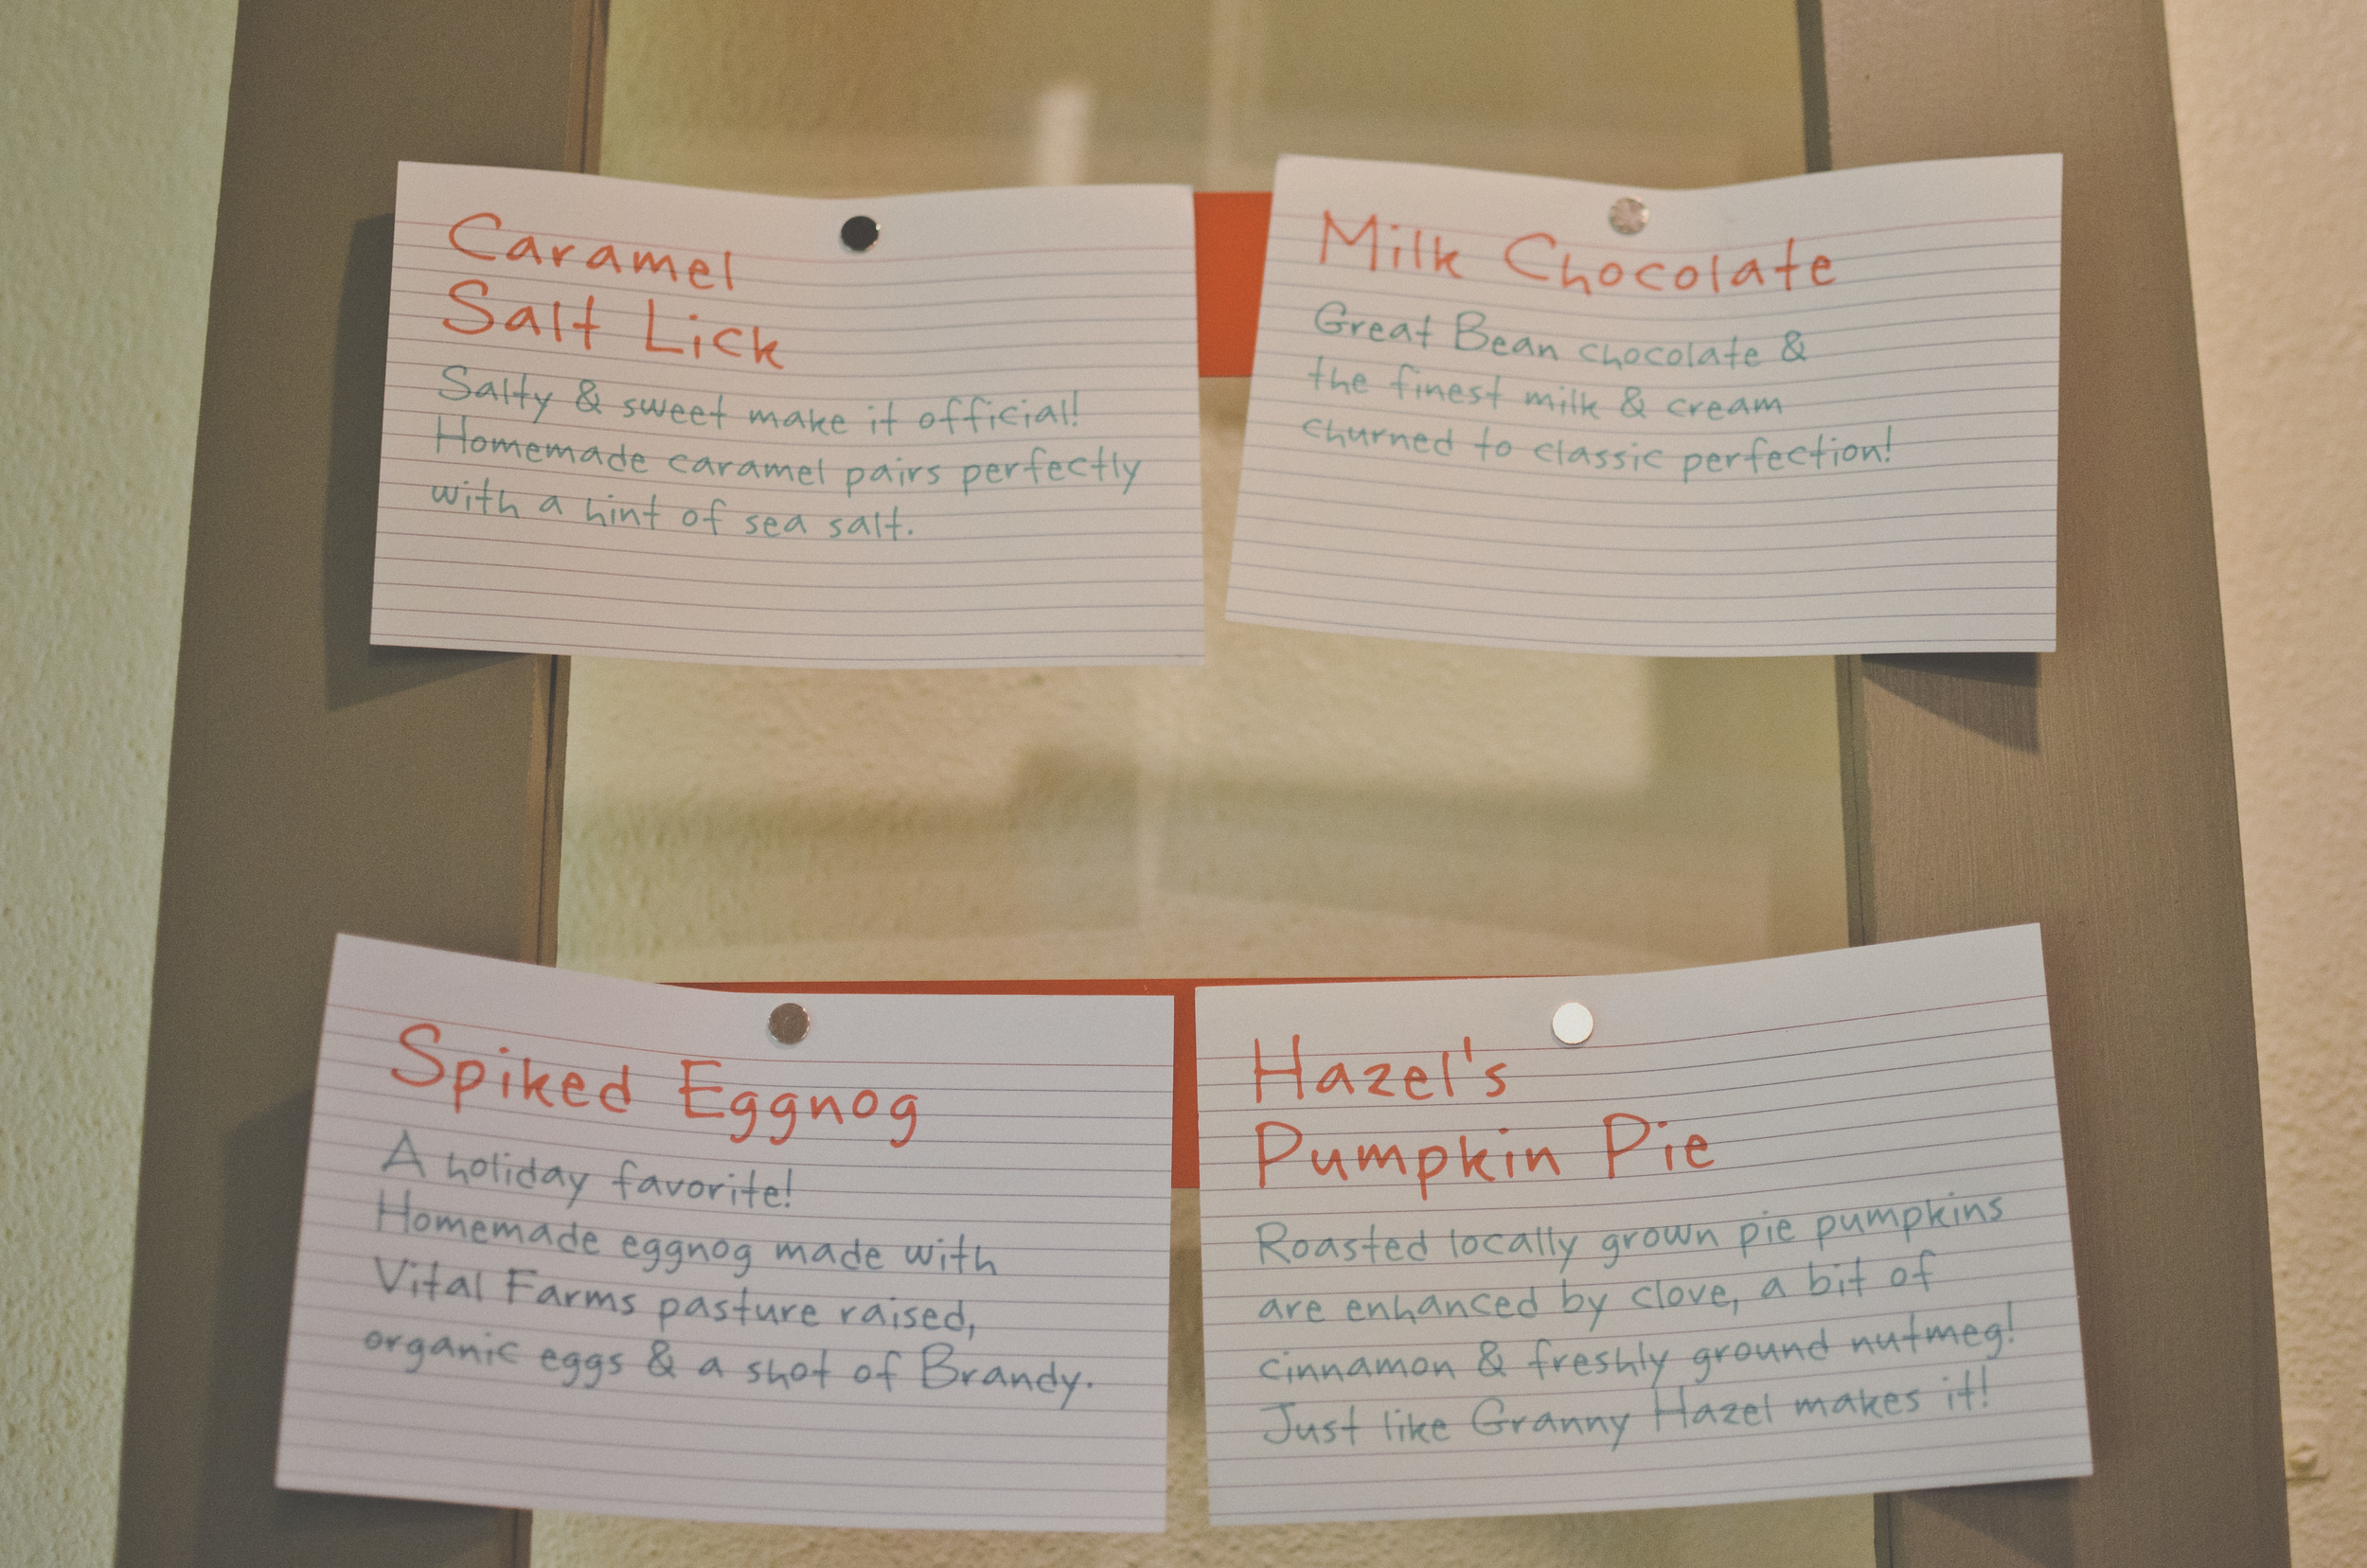 Caramel
Salt Lick
Salty & sweet make it official!
Homemade caramel pairs perfectly
with a hint of sea salt.
Milk Chocolate
Great Bean chocolate &
the finest milk & cream
churned to classic perfection!
Spiked Eggnog
A holiday favorite!
Homemade eggnog made with
Vital Farms pasture raised,
organic eggs & a shot of Brandy.
Hazel's
Pumpkin Pie
Roasted locally grown pie pumpkins
are enhanced by clove, a bit of
cinnamon & freshly ground nutmeg!
Just like Granny Hazel makes it!